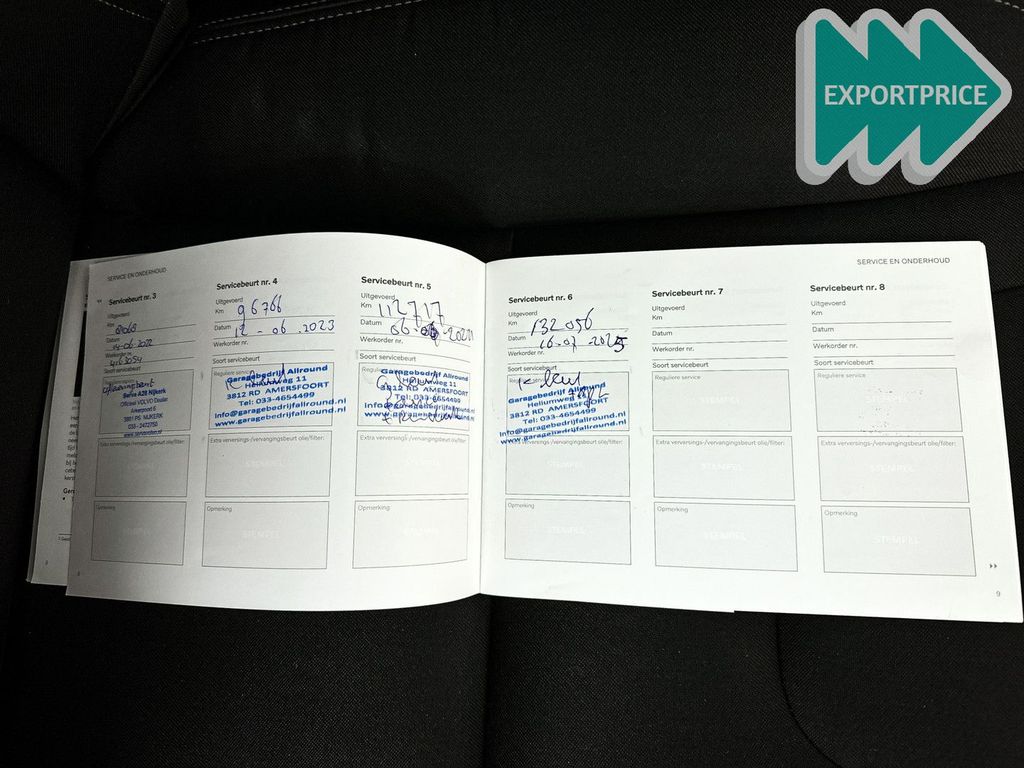 EXPORTPRICE
SERVICE EN ONDERHOUD
Servicebeurt nr. 3
Uitgevoerd
Km
Datum 14-06-2022
Werkorder nr.
Soort servicebeurt
Reguliere service
Serva A28 Nijkerk
Officieel VOLVO Dealer
Ampèrestraat
NIJKERK
Servicebeurt nr. 4
Uitgevoerd
Km 96766
Datum 12-06-2023
Werkorder nr.
Soort servicebeurt
Garagebedrijf Allround
Heliumweg 11
3812 RD AMERSFOORT
Tel: 033-4654499
Info@garagebedrijfallround.nl
www.garagebedrijfallround.nl
Extra verversings-/vervangingsbeurt olie/filter:
STEMPEL
Opmerking
STEMPEL
Servicebeurt nr. 5
Uitgevoerd
Km 112717
Datum
Werkorder nr.
Soort servicebeurt
Garagebedrijf Allround
Heliumweg 11
3812 RD AMERSFOORT
Tel: 033-4654499
Info@garagebedrijfallround.nl
www.garagebedrijfallround.nl
Extra verversings-/vervangingsbeurt olie/filter:
STEMPEL
Opmerking
8
SERVICE EN ONDERHOUD
Servicebeurt nr. 6
Uitgevoerd
Km 132056
Datum 16-07-2025
Werkorder nr.
Soort servicebeurt
Reguliere service
Garagebedrijf Allround
Heliumweg 11
3812 RD AMERSFOORT
Tel: 033-4654499
Info@garagebedrijfallround.nl
www.garagebedrijfallround.nl
Extra verversings-/vervangingsbeurt olie/filter:
STEMPEL
Opmerking
STEMPEL
Servicebeurt nr. 7
Uitgevoerd
Km
Datum
Werkorder nr.
Soort servicebeurt
Reguliere service
STEMPEL
Extra verversings-/vervangingsbeurt olie/filter:
STEMPEL
Opmerking
STEMPEL
Servicebeurt nr. 8
Uitgevoerd
Km
Datum
Werkorder nr.
Soort servicebeurt
Reguliere service
Extra verversings-/vervangingsbeurt olie/filter:
STEMPEL
Opmerking
STEMPEL
9